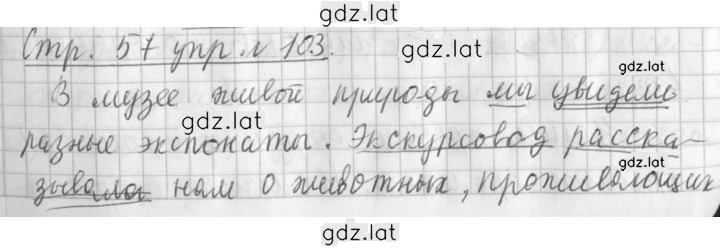 gdz.lat
Стр. 57 упр. № 103.
gdz.lat
gdz.lat
В музее живой природы мы увидели
gdz.lat
разные экспонаты. Экскурсовод расска-
gdz.lat
зывала нам о животных, проживающих
gdz.lat